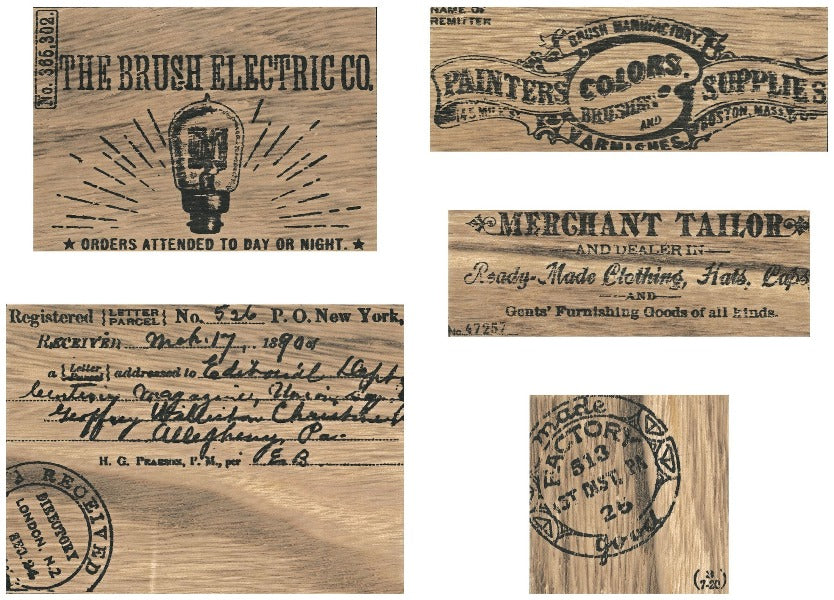 No. 366,302.
THE BRUSH ELECTRIC CO.
★ ORDERS ATTENDED TO DAY OR NIGHT. ★
NAME OF
REMITTER
BRUSH MANUFACTORY
PAINTERS COLORS, SUPPLIES
BRUSHES
AND
VARNISHES
BOSTON, MASS.
MERCHANT TAILOR
AND DEALER IN
Ready-Made Clothing, Hats, Caps
AND
Gents' Furnishing Goods of all kinds.
No. 47257
Registered {LETTER PARCEL} No. 526 P. O. New York,
RECEIVED Mch. 17, 1890 of
a {Letter Parcel} addressed to Editorial Dept
Century Magazine, Union sq.
Geoffrey Christine
Allegheny, Pa.
H. G. PEARSON, P. M., per E.B.
RECEIVED
DIRECTORY
LONDON, N.Z
DEC. 24
made
FACTORY
513
1ST DIST. PA
26
good
7-20